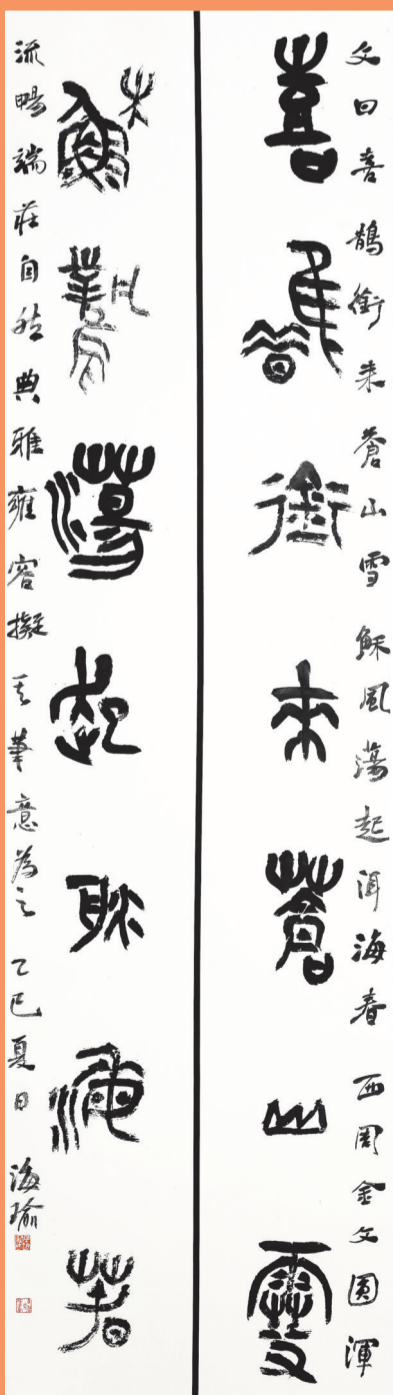 文曰喜鵲銜来蒼山雪穌風蕩起洱海春 西周金文圓渾
喜鵲銜來蒼山雪
穌風蕩起洱海春
流暢端莊自然典雅雍容擬其筆意為之 乙巳夏日 海瑜